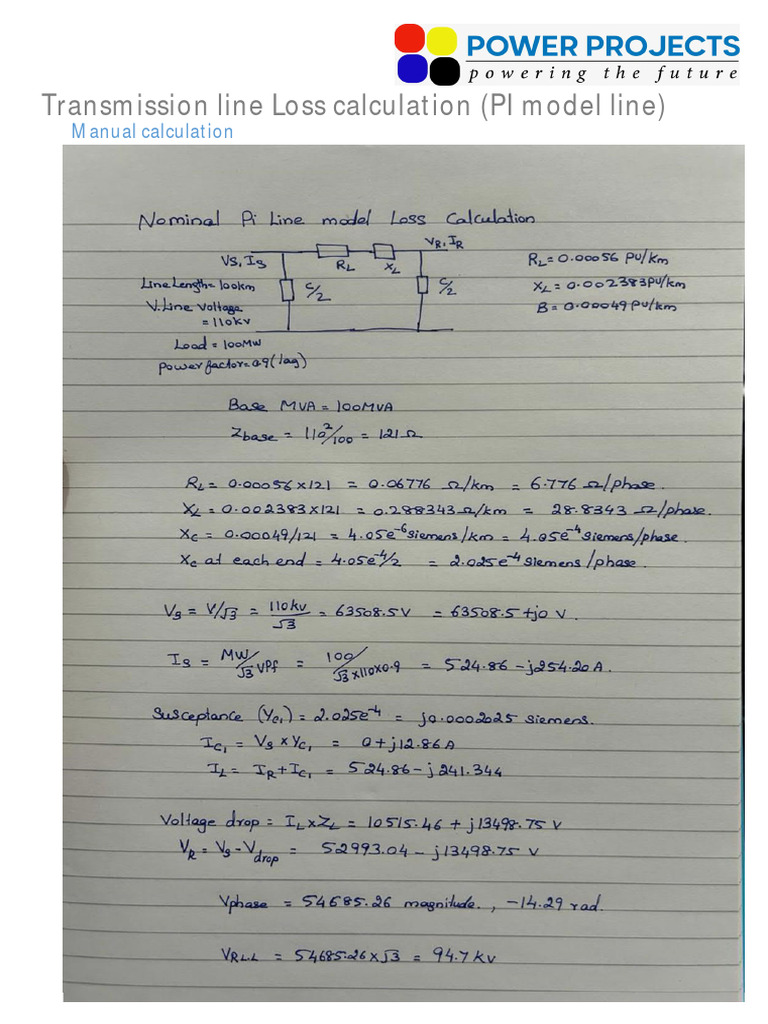 POWER PROJECTS
powering the future
Transmission line Loss calculation (PI model line)
Manual calculation
Nominal Pi Line model Loss Calculation
VS, IS
RL
XL
VR, IR
C/2
C/2
Line Length = 100km
V. Line Voltage
= 110kv
Load = 100MW
Power factor = 0.9 (lag)
RL = 0.00056 PU/km
XL = 0.002383 PU/km
B = 0.00049 PU/km
Base MVA = 100MVA
Zbase = 110²/100 = 121 Ω
RL = 0.00056 x 121 = 0.06776 Ω/km = 6.776 Ω/phase.
XL = 0.002383 x 121 = 0.288343 Ω/km = 28.8343 Ω/phase.
XC = 0.00049/121 = 4.05e⁻⁶ siemens/km = 4.05e⁻⁴ siemens/phase.
XC at each end = 4.05e⁻⁴/2 = 2.025e⁻⁴ siemens/phase.
VS = V/√3 = 110kv/√3 = 63508.5V = 63508.5 + j0 V.
IS = MW/√3 VPf = 100/√3 x 110 x 0.9 = 524.86 - j254.20 A.
Susceptance (YC1) = 2.025e⁻⁴ = j0.0002025 siemens.
IC1 = VS x YC1 = 0 + j12.86 A
IL = IR + IC1 = 524.86 - j241.344
Voltage drop = IL x ZL = 10515.46 + j13498.75 V
VR = VS - Vdrop = 52993.04 - j13498.75 V
Vphase = 54685.26 magnitude., -14.29 rad.
VRL.L = 54685.26 x √3 = 94.7 kv